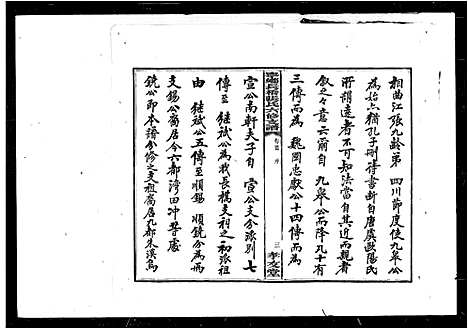 相曲江張九齡弟 四川節度使九皋公
為始六猶孔子刪書斷自唐虞歐陽氏
所謂遠者不可知法當自其近而親者
敘之之意云爾自 九皋公而降凡十有
三傳而為 魏國忠獻公十四傳而為
寧鄉長橋張氏六修支譜
卷首 序
三
孝友堂
宣公南軒夫子自 宣公支分派別七
傳至 鉽斌公為我長橋支初派祖
由 鉽斌公五傳至順錫 順鏡分為兩
支錫公裔居今六都灣田冲等處
鏡公即本譜分修之支祖裔居九都朱溪烏